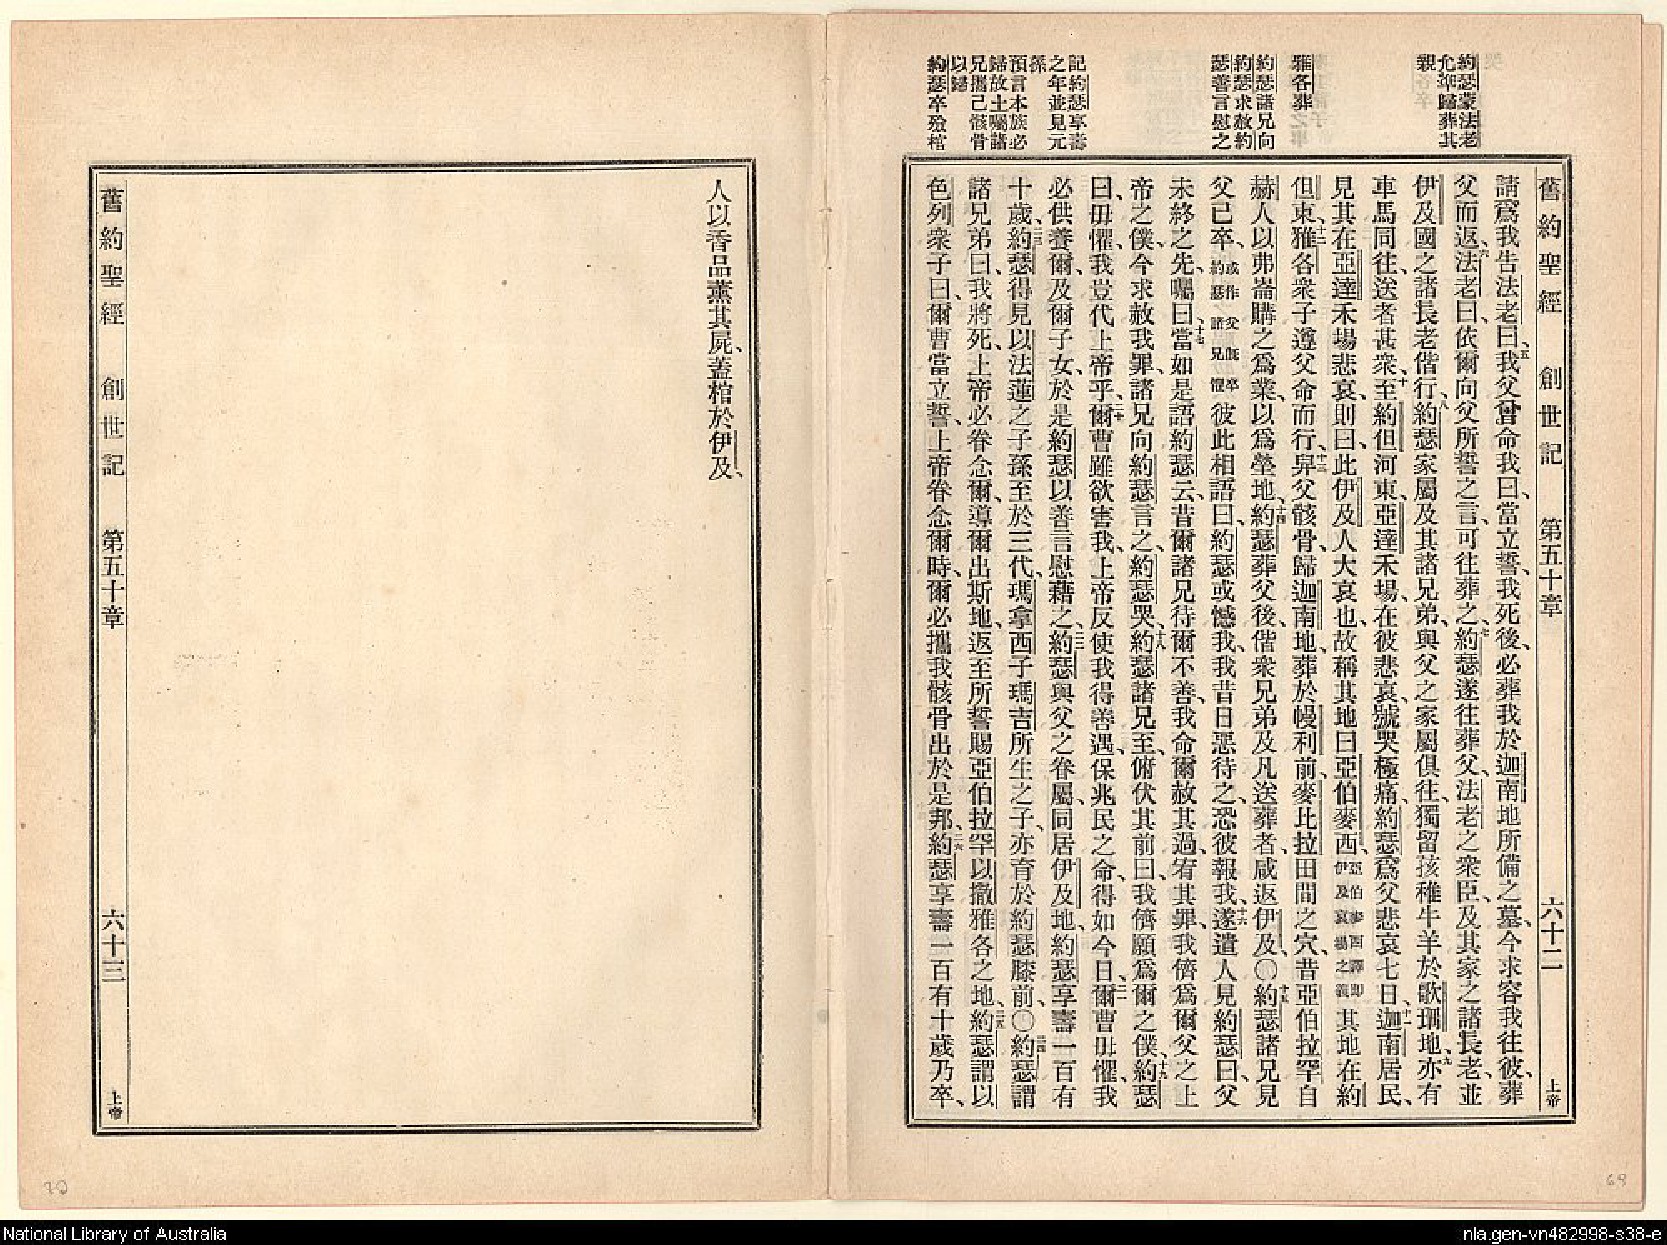 約瑟蒙法老
允準歸葬其
親
雅各葬之事
約瑟諸兄向
約瑟求赦約
瑟善言慰之
記約瑟享壽
之年並見元
孫
預言本族必
歸故土囑諸
兄攜己骸骨
以歸
約瑟卒殮棺
舊約聖經 創世記 第五十章 六十二 上帝
請爲我告法老曰、五我父曾命我曰、當立誓、我死後、必葬我於迦南地所備之墓、今求容我往彼、葬
父而返、六法老曰、依爾向父所誓之言、可往葬之、七約瑟遂往葬父、法老之衆臣、及其家之諸長老、並
伊及國之諸長老偕行、八約瑟家屬及其諸兄弟、與父之家屬俱往、獨留孩稚牛羊於歌珊地、九亦有
車馬同往、送者甚衆、十至約但河東、亞達禾場、在彼悲哀、號哭極痛、約瑟爲父悲哀七日、十一迦南居民、
見其在亞達禾場悲哀、則曰、此伊及人大哀也、故稱其地曰亞伯麥西、亞伯麥西譯卽伊及哀場之義其地在約
但東、十二雅各衆子遵父命而行、十三舁父骸骨、歸迦南地、葬於幔利前、麥比拉田間之穴、昔亞伯拉罕自
赫人以弗崙購之爲業、以爲塋地、十四約瑟葬父後、偕衆兄弟及凡送葬者、咸返伊及、〇十五約瑟諸兄見
父已卒、或作父旣卒約瑟諸兄懼彼此相語曰、約瑟或憾我、我昔日惡待之、恐彼報我、十六遂遣人見約瑟曰、父
未終之先、囑曰、十七當如是語約瑟云、昔爾諸兄待爾不善、我命爾赦其過、宥其罪、我儕爲爾父之上
帝之僕、今求赦我罪、諸兄向約瑟言之、約瑟哭、十八約瑟諸兄至、俯伏其前曰、我儕願爲爾之僕、十九約瑟
曰、毋懼、我豈代上帝乎、二十爾曹雖欲害我、上帝反使我得善遇、保兆民之命、得如今日、二一爾曹毋懼、我
必供養爾、及爾子女、於是約瑟以善言慰藉之、二二約瑟與父之眷屬、同居伊及地、約瑟享壽一百有
十歲、二三約瑟得見以法蓮之子孫至於三代、瑪拿西子瑪吉所生之子、亦育於約瑟膝前、〇二四約瑟謂
諸兄弟曰、我將死、上帝必眷念爾、導爾出斯地、返至所誓賜亞伯拉罕以撒雅各之地、二五約瑟謂以
色列衆子曰、爾曹當立誓、上帝眷念爾時、爾必攜我骸骨出於是邦、二六約瑟享壽一百有十歲乃卒、
人以香品薰其屍、蓋棺於伊及、
舊約聖經 創世記 第五十章 六十三 上帝
70
69
National Library of Australia
nla.gen-vn482998-s38-e